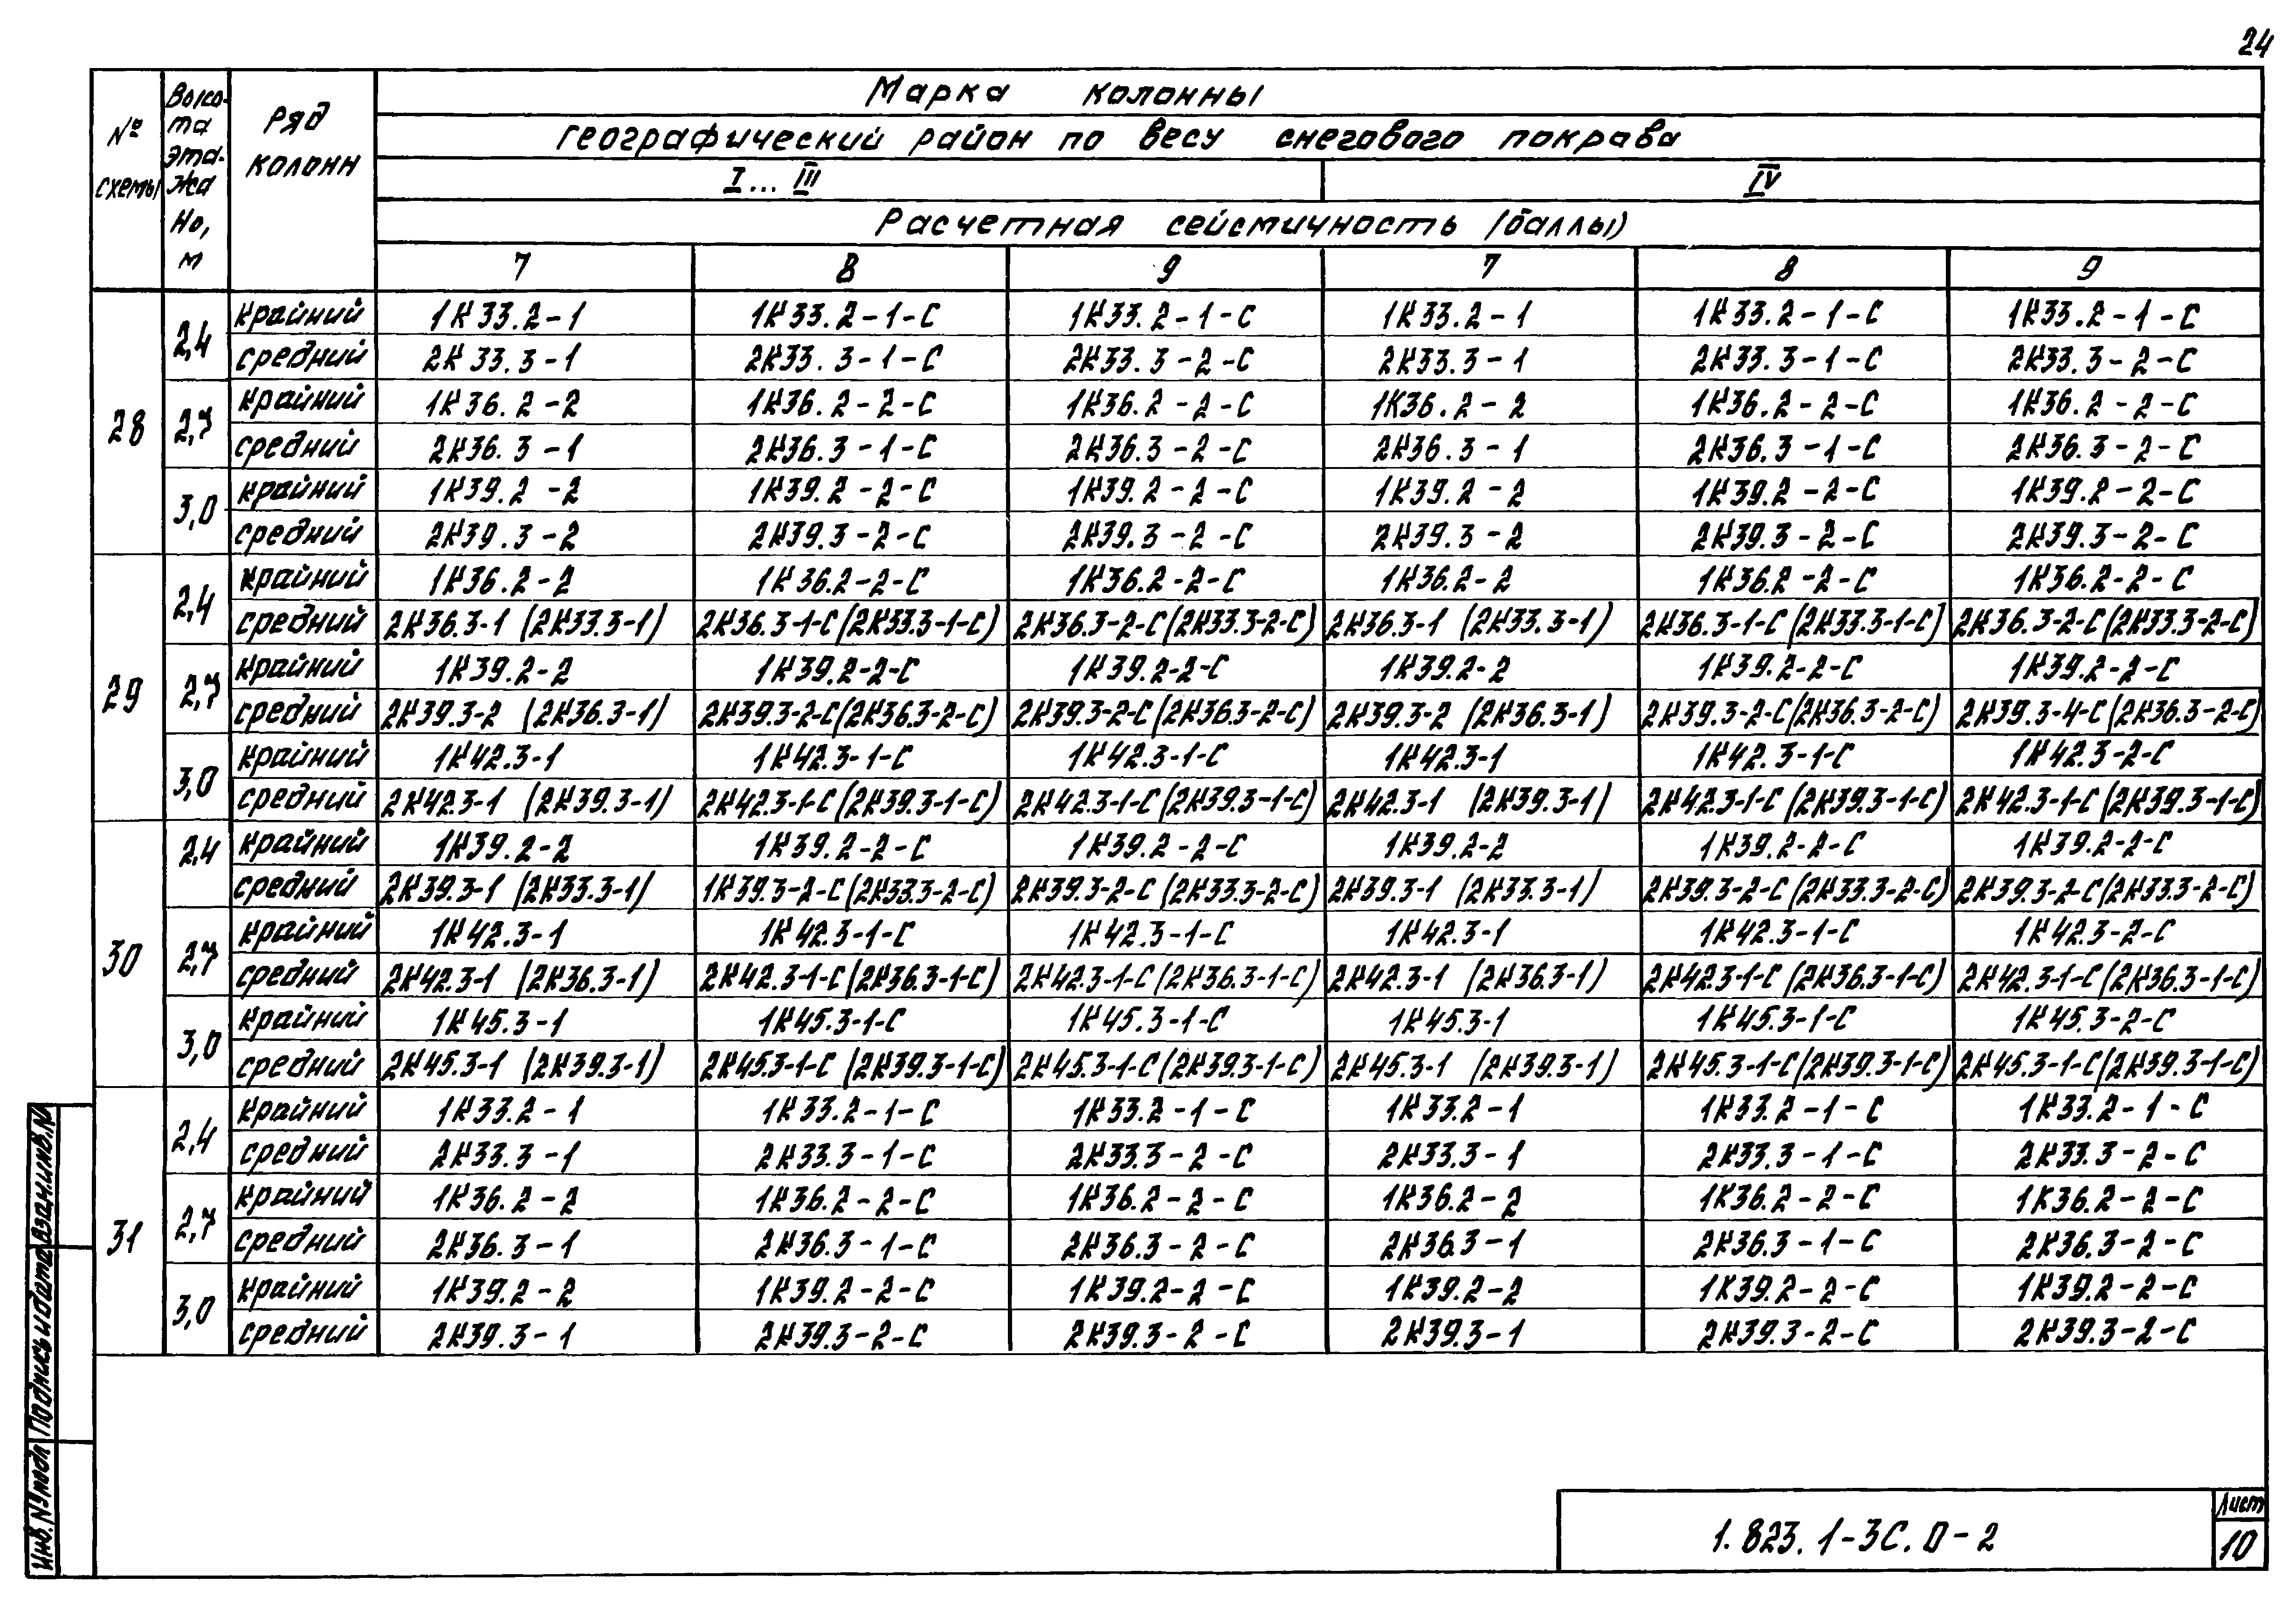 24
№ схемы | Высо-та эта-жа Но, м | Ряд колонн | Марка колонны
географический район по весу снегового покрова
I ... III | IV
Расчетная сейсмичность (баллы)
7 | 8 | 9 | 7 | 8 | 9
28 | 2,4 | крайний | 1К33.2-1 | 1К33.2-1-С | 1К33.2-1-С | 1К33.2-1 | 1К33.2-1-С | 1К33.2-1-С
средний | 2К33.3-1 | 2К33.3-1-С | 2К33.3-2-С | 2К33.3-1 | 2К33.3-1-С | 2К33.3-2-С
2,7 | крайний | 1К36.2-2 | 1К36.2-2-С | 1К36.2-2-С | 1К36.2-2 | 1К36.2-2-С | 1К36.2-2-С
средний | 2К36.3-1 | 2К36.3-1-С | 2К36.3-2-С | 2К36.3-1 | 2К36.3-1-С | 2К36.3-2-С
3,0 | крайний | 1К39.2-2 | 1К39.2-2-С | 1К39.2-2-С | 1К39.2-2 | 1К39.2-2-С | 1К39.2-2-С
средний | 2К39.3-2 | 2К39.3-2-С | 2К39.3-2-С | 2К39.3-2 | 2К39.3-2-С | 2К39.3-2-С
29 | 2,4 | крайний | 1К36.2-2 | 1К36.2-2-С | 1К36.2-2-С | 1К36.2-2 | 1К36.2-2-С | 1К36.2-2-С
средний | 2К36.3-1 (2К33.3-1) | 2К36.3-1-С (2К33.3-1-С) | 2К36.3-2-С (2К33.3-2-С) | 2К36.3-1 (2К33.3-1) | 2К36.3-1-С (2К33.3-1-С) | 2К36.3-2-С (2К33.3-2-С)
2,7 | крайний | 1К39.2-2 | 1К39.2-2-С | 1К39.2-2-С | 1К39.2-2 | 1К39.2-2-С | 1К39.2-2-С
средний | 2К39.3-2 (2К36.3-1) | 2К39.3-2-С (2К36.3-2-С) | 2К39.3-2-С (2К36.3-2-С) | 2К39.3-2 (2К36.3-1) | 2К39.3-2-С (2К36.3-2-С) | 2К39.3-4-С (2К36.3-2-С)
3,0 | крайний | 1К42.3-1 | 1К42.3-1-С | 1К42.3-1-С | 1К42.3-1 | 1К42.3-1-С | 1К42.3-2-С
средний | 2К42.3-1 (2К39.3-1) | 2К42.3-1-С (2К39.3-1-С) | 2К42.3-1-С (2К39.3-1-С) | 2К42.3-1 (2К39.3-1) | 2К42.3-1-С (2К39.3-1-С) | 2К42.3-1-С (2К39.3-1-С)
30 | 2,4 | крайний | 1К39.2-2 | 1К39.2-2-С | 1К39.2-2-С | 1К39.2-2 | 1К39.2-2-С | 1К39.2-2-С
средний | 2К39.3-1 (2К33.3-1) | 1К39.3-2-С (2К33.3-2-С) | 2К39.3-2-С (2К33.3-2-С) | 2К39.3-1 (2К33.3-1) | 2К39.3-2-С (2К33.3-2-С) | 2К39.3-2-С (2К33.3-2-С)
2,7 | крайний | 1К42.3-1 | 1К42.3-1-С | 1К42.3-1-С | 1К42.3-1 | 1К42.3-1-С | 1К42.3-2-С
средний | 2К42.3-1 (2К36.3-1) | 2К42.3-1-С (2К36.3-1-С) | 2К42.3-1-С (2К36.3-1-С) | 2К42.3-1 (2К36.3-1) | 2К42.3-1-С (2К36.3-1-С) | 2К42.3-1-С (2К36.3-1-С)
3,0 | крайний | 1К45.3-1 | 1К45.3-1-С | 1К45.3-1-С | 1К45.3-1 | 1К45.3-1-С | 1К45.3-2-С
средний | 2К45.3-1 (2К39.3-1) | 2К45.3-1-С (2К39.3-1-С) | 2К45.3-1-С (2К39.3-1-С) | 2К45.3-1 (2К39.3-1) | 2К45.3-1-С (2К39.3-1-С) | 2К45.3-1-С (2К39.3-1-С)
31 | 2,4 | крайний | 1К33.2-1 | 1К33.2-1-С | 1К33.2-1-С | 1К33.2-1 | 1К33.2-1-С | 1К33.2-1-С
средний | 2К33.3-1 | 2К33.3-1-С | 2К33.3-2-С | 2К33.3-1 | 2К33.3-1-С | 2К33.3-2-С
2,7 | крайний | 1К36.2-2 | 1К36.2-2-С | 1К36.2-2-С | 1К36.2-2 | 1К36.2-2-С | 1К36.2-2-С
средний | 2К36.3-1 | 2К36.3-1-С | 2К36.3-2-С | 2К36.3-1 | 2К36.3-1-С | 2К36.3-2-С
3,0 | крайний | 1К39.2-2 | 1К39.2-2-С | 1К39.2-2-С | 1К39.2-2 | 1К39.2-2-С | 1К39.2-2-С
средний | 2К39.3-1 | 2К39.3-2-С | 2К39.3-2-С | 2К39.3-1 | 2К39.3-2-С | 2К39.3-2-С
Инв.№подл Подпись и дата Взам.инв.№
1.823.1-3С.0-2
Лист
10